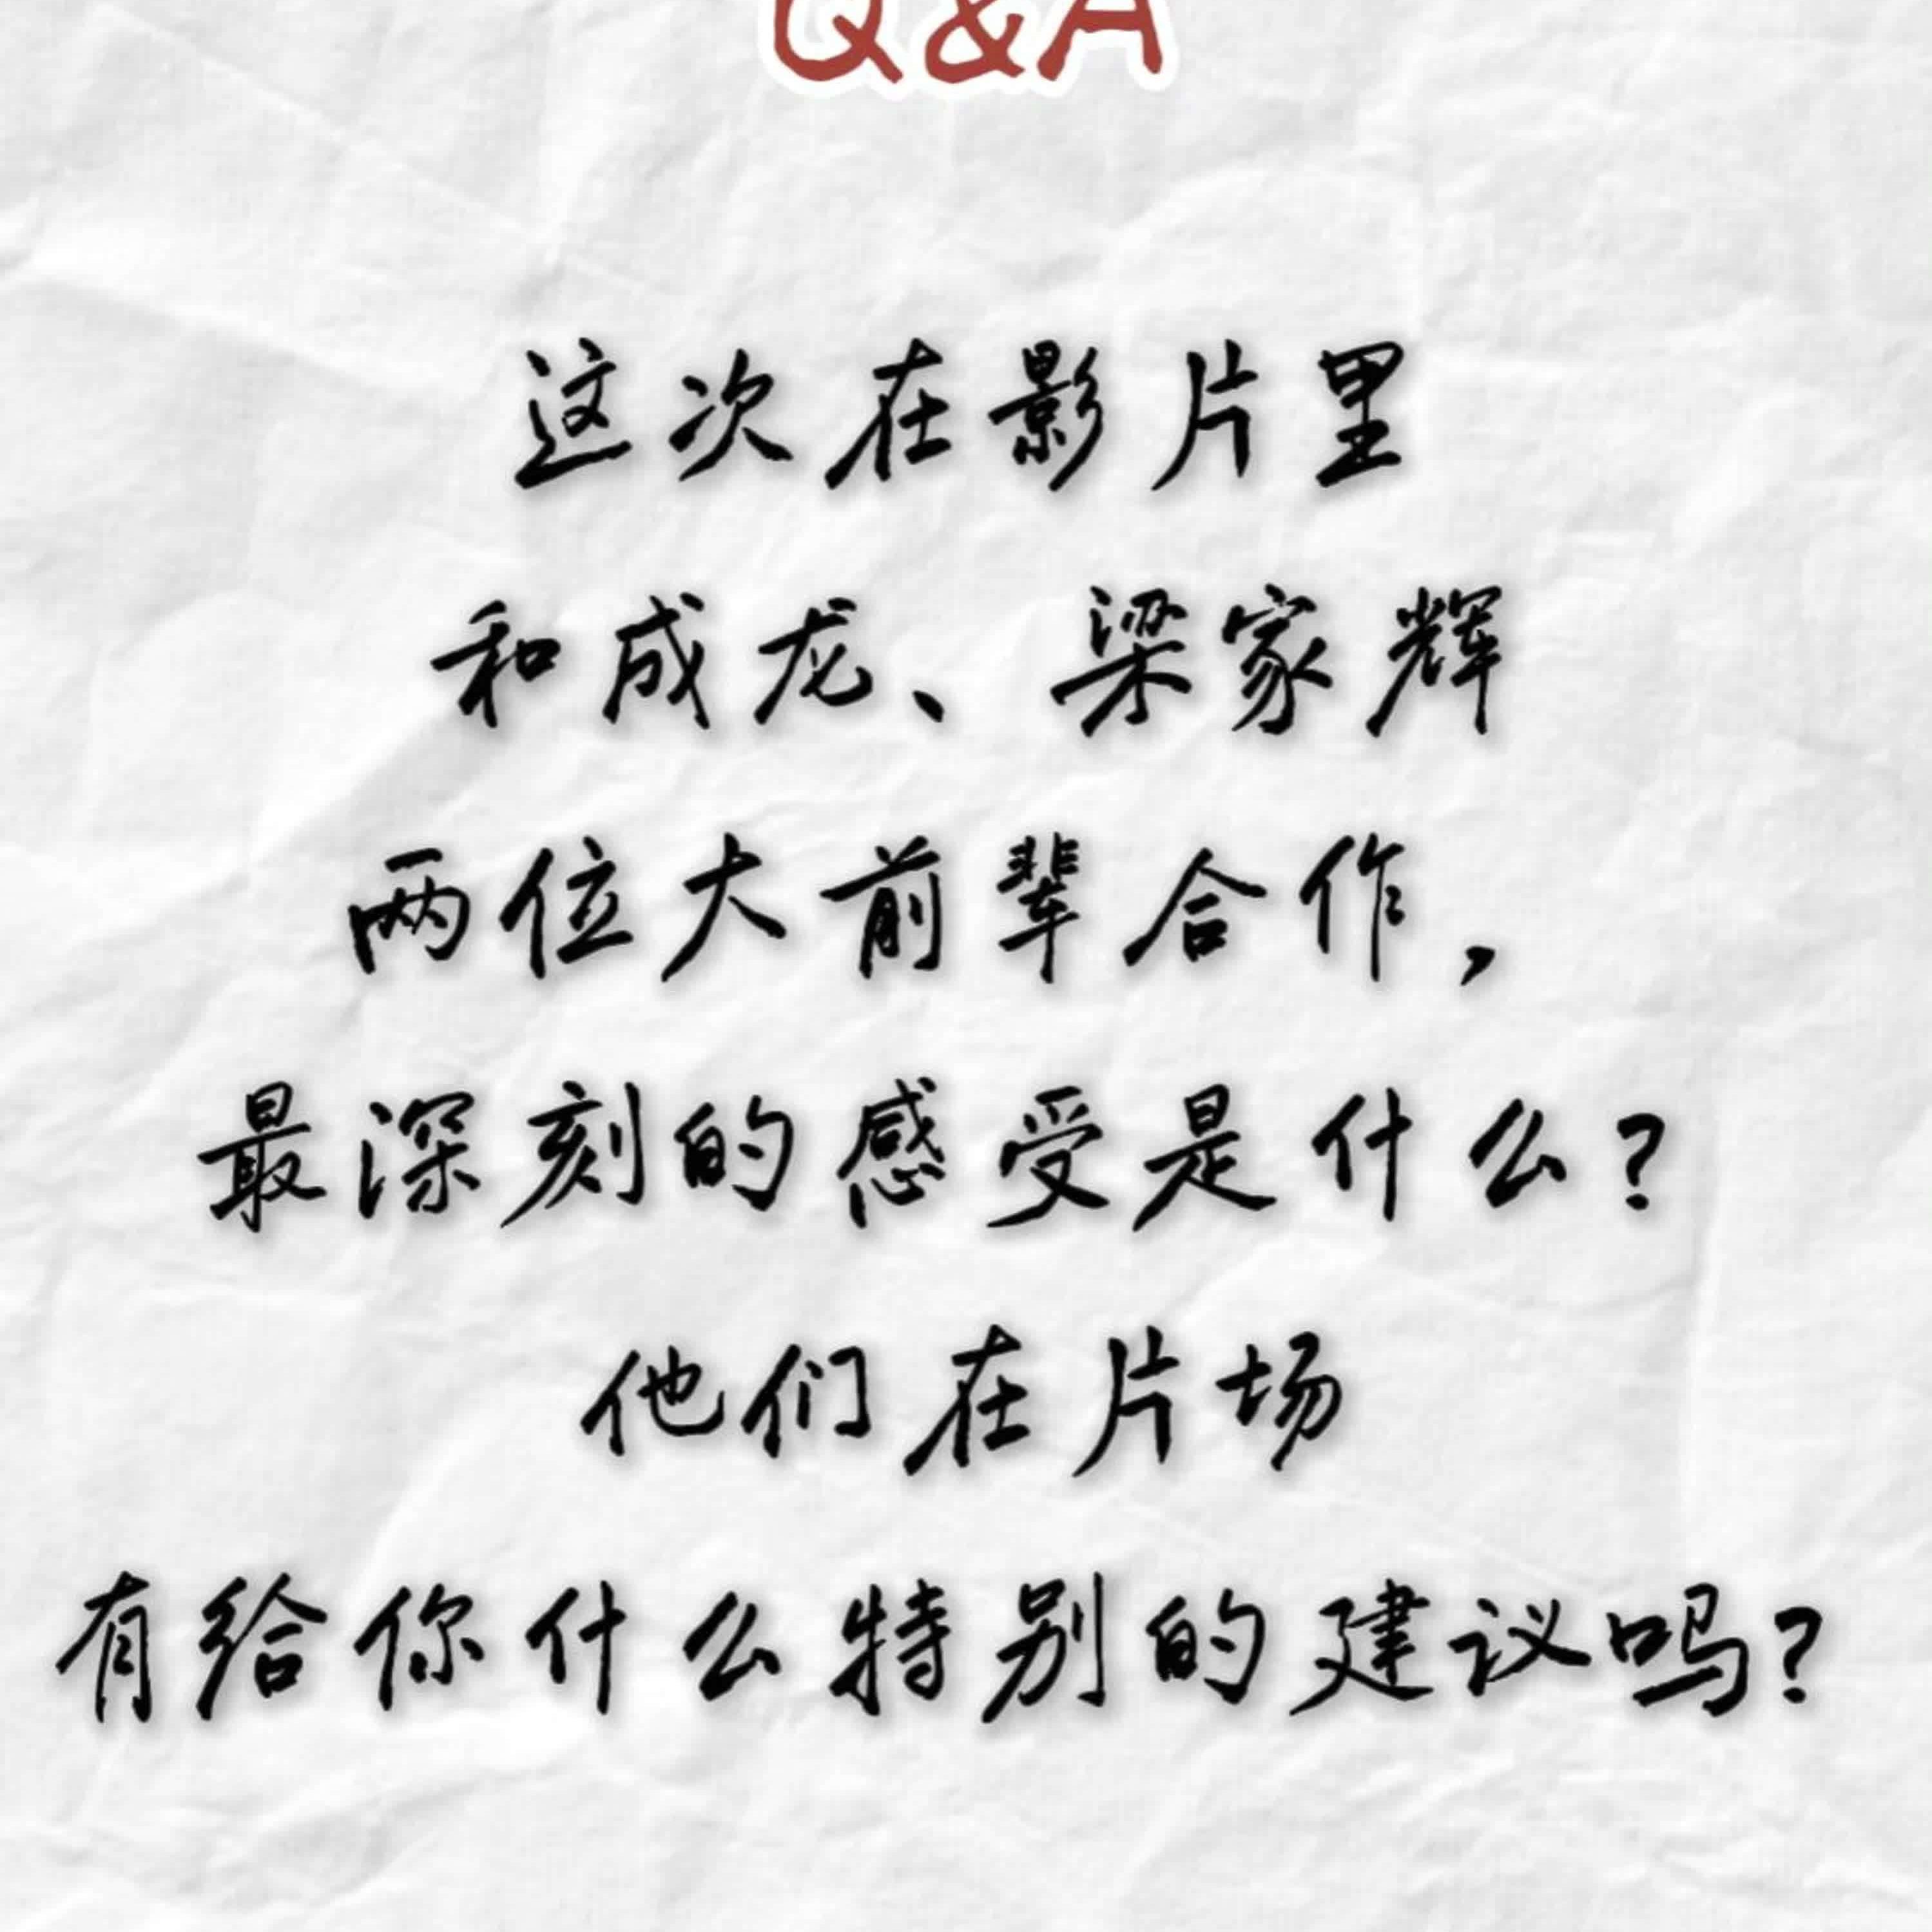 Q&A
这次在影片里
和成龙、梁家辉
两位大前辈合作，
最深刻的感受是什么？
他们在片场
有给你什么特别的建议吗？